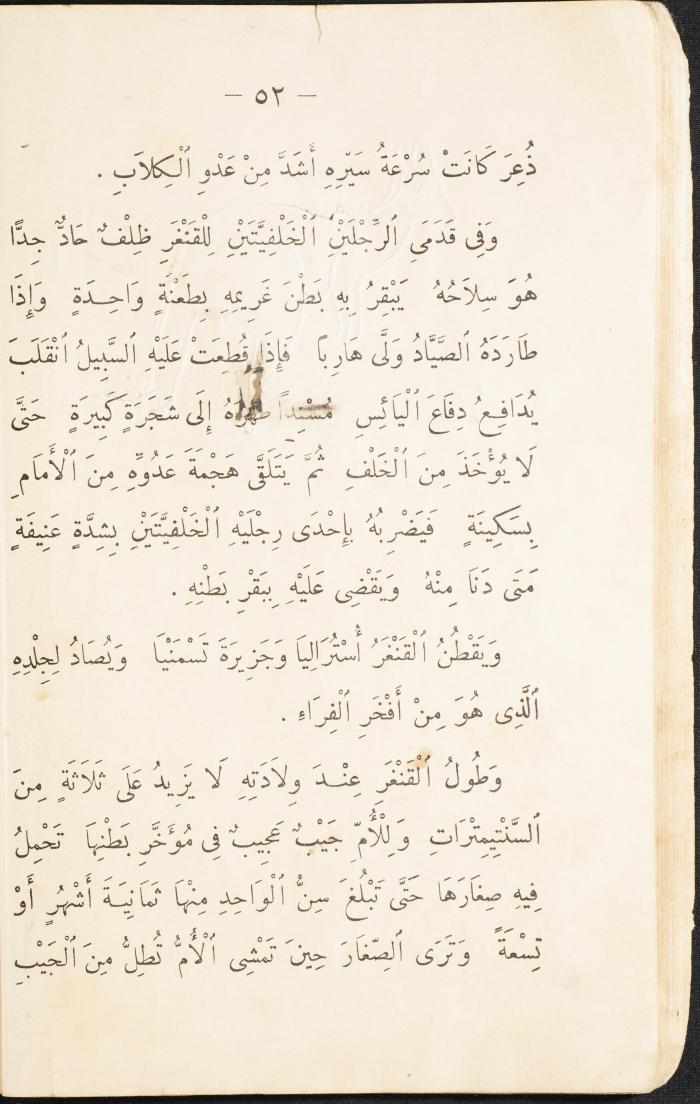 — ٥٢ —
ذُعِرَ كَانَتْ سُرْعَةُ سَيْرِهِ أَشَدَّ مِنْ عَدْوِ ٱلْكِلاَبِ .
وَفِى قَدَمَىِ ٱلرِّجْلَيْنِ ٱلْخَلْفِيَّتَيْنِ لِلْقَنْغَرِ ظِلْفٌ حَادٌّ جِدًّا
هُوَ سِلاَحُهُ يَبْقِرُ بِهِ بَطْنَ غَرِيمِهِ بِطَعْنَةٍ وَاحِدَةٍ وَإِذَا
طَارَدَهُ ٱلصَّيَّادُ وَلَّى هَارِبًا فَإِذَا قُطِعَتْ عَلَيْهِ ٱلسَّبِيلُ ٱنْقَلَبَ
يُدَافِعُ دِفَاعَ ٱلْيَائِسِ مُسْنِداً ظَهْرَهُ إِلَى شَجَرَةٍ كَبِيرَةٍ حَتَّى
لَا يُؤْخَذَ مِنَ ٱلْخَلْفِ ثُمَّ يَتَلَقَّى هَجْمَةَ عَدُوِّهِ مِنَ ٱلْأَمَامِ
بِسَكِينَةٍ فَيَضْرِبُهُ بِإِحْدَى رِجْلَيْهِ ٱلْخَلْفِيَّتَيْنِ بِشِدَّةٍ عَنِيفَةٍ
مَتَى دَنَا مِنْهُ وَيَقْضِى عَلَيْهِ بِبَقْرِ بَطْنِهِ .
وَيَقْطُنُ ٱلْقَنْغَرُ أُسْتُرَالِيَا وَجَزِيرَةَ تَسْمَنْيَا وَيُصَادُ لِجِلْدِهِ
ٱلَّذِى هُوَ مِنْ أَفْخَرِ ٱلْفِرَاءِ .
وَطُولُ ٱلْقَنْغَرِ عِنْدَ وِلاَدَتِهِ لَا يَزِيدُ عَلَى ثَلَاثَةٍ مِنَ
ٱلسَّنْتِيمِتْرَاتِ وَلِلْأُمِّ جَيْبٌ عَجِيبٌ فِى مُؤَخَّرِ بَطْنِهَا تَحْمِلُ
فِيهِ صِغَارَهَا حَتَّى تَبْلُغَ سِنُّ ٱلْوَاحِدِ مِنْهَا ثَمَانِيَةَ أَشْهُرٍ أَوْ
تِسْعَةً وَتَرَى ٱلصِّغَارَ حِينَ تَمْشِى ٱلْأُمُّ تُطِلُّ مِنَ ٱلْجَيْبِ